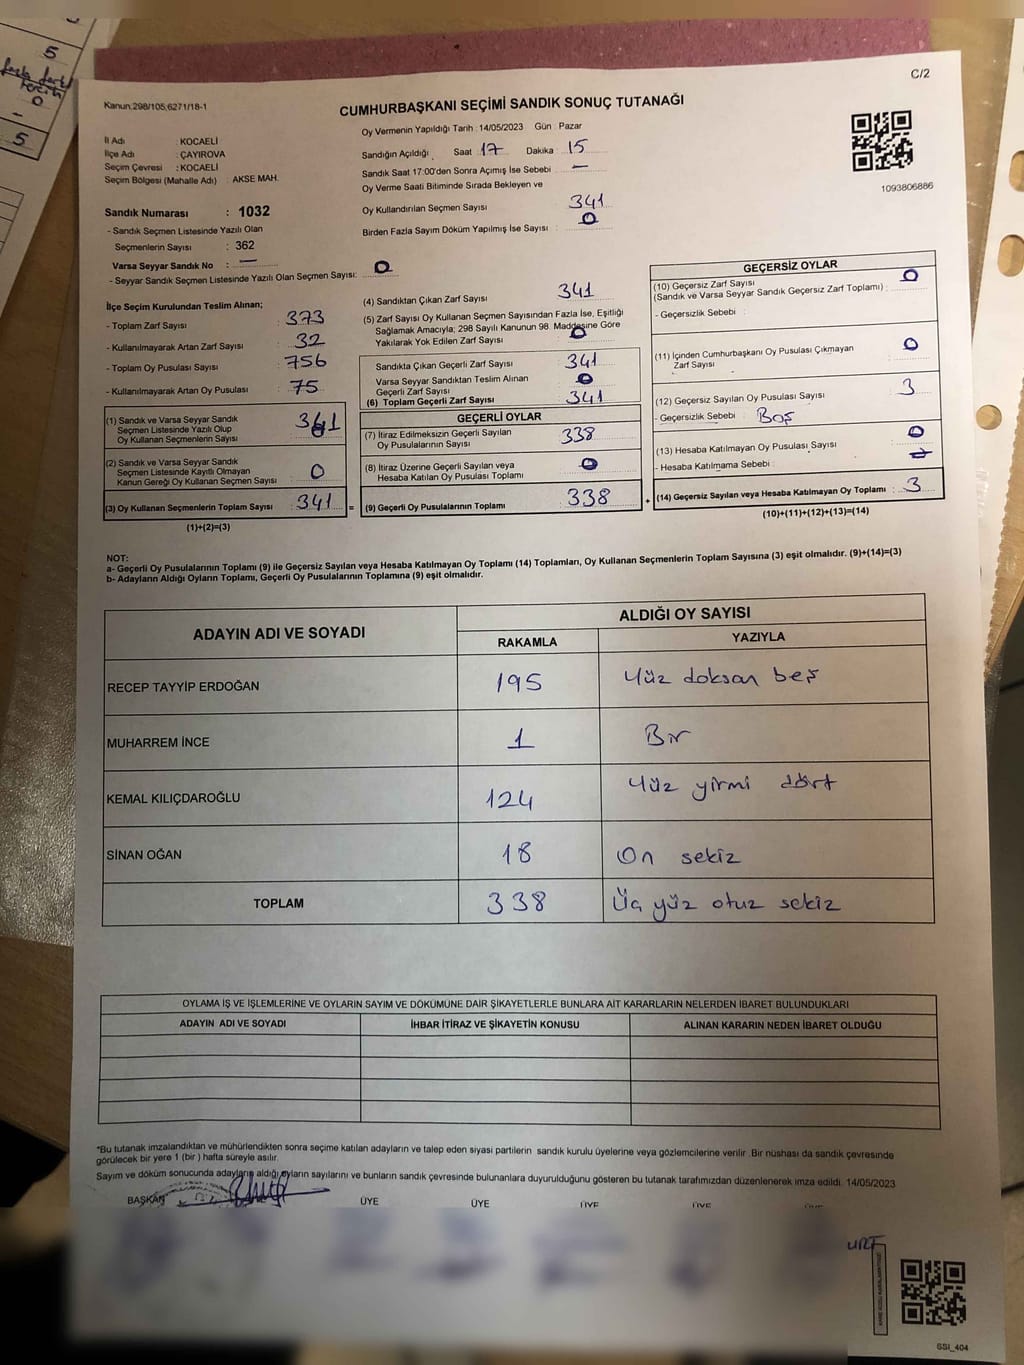 5
0
-
5
C/2
Kanun:298/105;6271/18-1
CUMHURBAŞKANI SEÇİMİ SANDIK SONUÇ TUTANAĞI
İl Adı : KOCAELİ
İlçe Adı : ÇAYIROVA
Seçim Çevresi : KOCAELİ
Seçim Bölgesi (Mahalle Adı) : AKSE MAH.
Oy Vermenin Yapıldığı Tarih : 14/05/2023 Gün : Pazar
Sandığın Açıldığı : Saat 17 Dakika : 15
Sandık Saat 17:00'den Sonra Açımış İse Sebebi : —
Oy Verme Saati Bitiminde Sırada Bekleyen ve
Oy Kullandırılan Seçmen Sayısı 341
Birden Fazla Sayım Döküm Yapılmış İse Sayısı : 0
1093806886
Sandık Numarası : 1032
- Sandık Seçmen Listesinde Yazılı Olan
Seçmenlerin Sayısı : 362
Varsa Seyyar Sandık No : —
- Seyyar Sandık Seçmen Listesinde Yazılı Olan Seçmen Sayısı: 0
İlçe Seçim Kurulundan Teslim Alınan;
- Toplam Zarf Sayısı : 373
- Kullanılmayarak Artan Zarf Sayısı : 32
- Toplam Oy Pusulası Sayısı : 756
- Kullanılmayarak Artan Oy Pusulası : 75
(1) Sandık ve Varsa Seyyar Sandık
Seçmen Listesinde Yazılı Olup
Oy Kullanan Seçmenlerin Sayısı : 341
(2) Sandık ve Varsa Seyyar Sandık
Seçmen Listesinde Kayıtlı Olmayan
Kanun Gereği Oy Kullanan Seçmen Sayısı : 0
(3) Oy Kullanan Seçmenlerin Toplam Sayısı : 341 =
(1)+(2)=(3)
(4) Sandıktan Çıkan Zarf Sayısı : 341
(5) Zarf Sayısı Oy Kullanan Seçmen Sayısından Fazla İse, Eşitliği
Sağlamak Amacıyla; 298 Sayılı Kanunun 98. Maddesine Göre
Yakılarak Yok Edilen Zarf Sayısı : 0
Sandıkta Çıkan Geçerli Zarf Sayısı : 341
Varsa Seyyar Sandıktan Teslim Alınan
Geçerli Zarf Sayısı : 0
(6) Toplam Geçerli Zarf Sayısı : 341
GEÇERLİ OYLAR
(7) İtiraz Edilmeksizin Geçerli Sayılan
Oy Pusulalarının Sayısı : 338
(8) İtiraz Üzerine Geçerli Sayılan veya
Hesaba Katılan Oy Pusulası Toplamı : 0
(9) Geçerli Oy Pusulalarının Toplamı : 338 +
GEÇERSİZ OYLAR
(10) Geçersiz Zarf Sayısı
(Sandık ve Varsa Seyyar Sandık Geçersiz Zarf Toplamı) : 0
- Geçersizlik Sebebi :
(11) İçinden Cumhurbaşkanı Oy Pusulası Çıkmayan
Zarf Sayısı : 0
(12) Geçersiz Sayılan Oy Pusulası Sayısı : 3
- Geçersizlik Sebebi : Boş
(13) Hesaba Katılmayan Oy Pusulası Sayısı : 0
- Hesaba Katılmama Sebebi :
(14) Geçersiz Sayılan veya Hesaba Katılmayan Oy Toplamı : 3
(10)+(11)+(12)+(13)=(14)
NOT:
a- Geçerli Oy Pusulalarının Toplamı (9) ile Geçersiz Sayılan veya Hesaba Katılmayan Oy Toplamı (14) Toplamları, Oy Kullanan Seçmenlerin Toplam Sayısına (3) eşit olmalıdır. (9)+(14)=(3)
b- Adayların Aldığı Oyların Toplamı, Geçerli Oy Pusulalarının Toplamına (9) eşit olmalıdır.
ADAYIN ADI VE SOYADI
ALDIĞI OY SAYISI
RAKAMLA YAZIYLA
RECEP TAYYİP ERDOĞAN 195 Yüz doksan beş
MUHARREM İNCE 1 Bir
KEMAL KILIÇDAROĞLU 124 Yüz yirmi dört
SİNAN OĞAN 18 On sekiz
TOPLAM 338 Üç yüz otuz sekiz
OYLAMA İŞ VE İŞLEMLERİNE VE OYLARIN SAYIM VE DÖKÜMÜNE DAİR ŞİKAYETLERLE BUNLARA AİT KARARLARIN NELERDEN İBARET BULUNDUKLARI
ADAYIN ADI VE SOYADI İHBAR İTİRAZ VE ŞİKAYETİN KONUSU ALINAN KARARIN NEDEN İBARET OLDUĞU
*Bu tutanak imzalandıktan ve mühürlendikten sonra seçime katılan adayların ve talep eden siyasi partilerin sandık kurulu üyelerine veya gözlemcilerine verilir .Bir nüshası da sandık çevresinde
görülecek bir yere 1 (bir ) hafta süreyle asılır.
Sayım ve döküm sonucunda adayların aldığı oyların sayılarını ve bunların sandık çevresinde bulunanlara duyurulduğunu gösteren bu tutanak tarafımızdan düzenlenerek imza edildi. 14/05/2023
BAŞKAN ÜYE ÜYE ÜYE ÜYE ÜYE
URT
SSİ_404